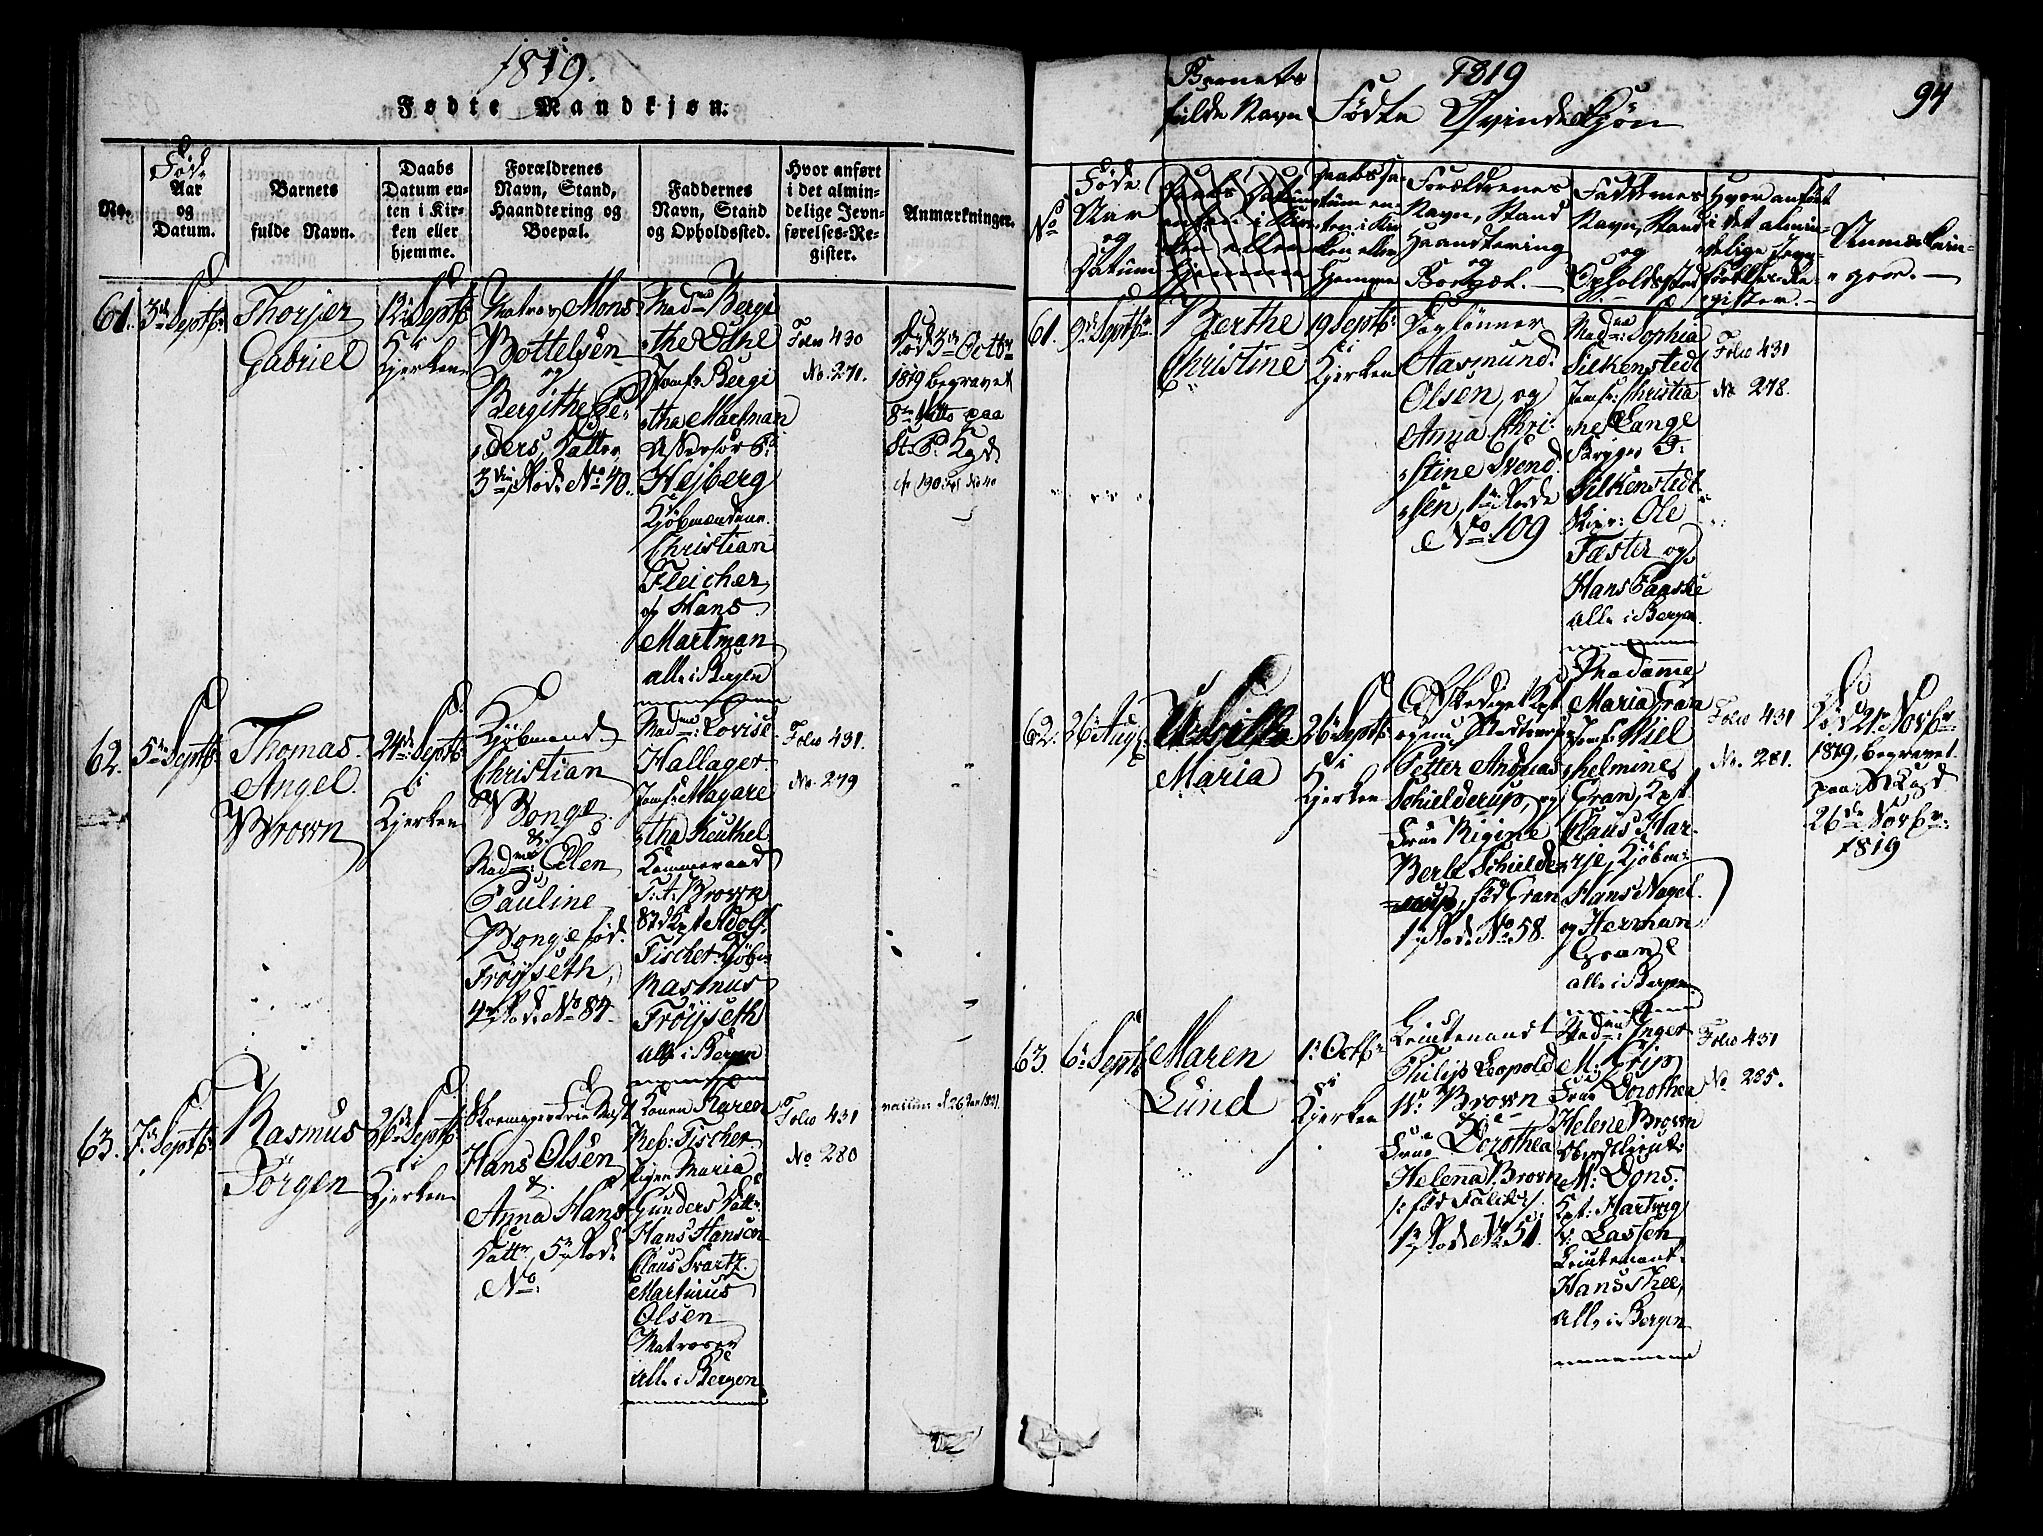 1819.
Fødte Mandkjøn.
No.
Føde
Aar
og
Datum.
Barnets
fulde Navn.
Daabs
Datum en-
ten i Kir-
ken eller
hjemme.
Forældrenes
Navn, Stand,
Haandtering og
Boepæl.
Faddernes
Navn, Stand
og Opholdssted.
Hvor anført
i det almin-
delige Jevn-
førelses-Re-
gister.
Anmærkninger.
61.
3de Septb:
Thorjer
Gabriel
12te Septb
i
Kjerken
Matros Mons
Bottelsen
og
Bergithe Pe-
ders Datter
3die Rode No 40.
Madme Bergi
the Edhe
Jomfr Bergi
tha Martman
Hejberg
Kjøbmændene
Christian
Fleicher
og Hans
Martman
alle i Bergen
Folio 430
No. 271.
Død 3die Octbr
1819 begravet
8de ditto paa
St. P. Kgd.
62.
5te Septb:
Thomas
Angel
Brown
24de Septb:
i
Kjerken
Kjøbmand
Christian
Bonge
&
Madme Elen
Pauline
Bonge fød
Frøyseth,
4de Rode No 84.
Madme: Lovise
Hallager
Jomfr: Magare
tha Reuthel
Kammeraad
T: A: Brown
Kpt Adolf
Fischer Kjøbm
Rasmus
Frøyseth
alle i Bergen
Folio 431.
No. 279
63.
7de Septb:
Rasmus
Jørgen
26de Septb
i
Kjerken
Hans Olsen
&
Anna Hans
Datter, 5te Rode
No:
Konen Karen
Reb: Fischer
Pigen Maria
Gunders Datt:
Hans Hanson
Claus Svartz.
Martinus
Olsen
Matroser
alle i Bergen
Folio 431
No 280
26 Jan 1821.
94
1819
Barnets
fulde Navn
Fødte Qvinde Kjøn
No
Føde
Aar
og
Datum
Daabs Datum
enten i Kir
ken eller
Hjemme
Daabs Da-
tum en
ten i Kir
ken eller
Hjemme
Forældrenes
Navn, Stand
Haandtering
og
Boepæl.
Faddernes
Navn, Stand
og
Opholdssted
Hvor anført
i det almin-
delige Jevn-
førelse Re-
gister.
Anmærknin-
ger.
61.
9de Septbr.
Berthe
Christine
19 Septb:
i
Kjerken
Daglønner
Aasmund
Olsen og
Anna Chri-
stine Svend
sen, 1te Rode
No 109
Madme: Sophia
Silkenstedt
Jomfr: Christia
ne Lange
Skriger F:
Silkenstedt
Skipr: Ole
Fæster og
Hans Faaske
alle i Bergen
Folio 431
No 278.
62.
26de Aug:
Maria
26de Septb:
i
Kjerken
Afskediget Kpt
Petter Andreas
Schielderup, og
Frue Rigine
Berle Schielde-
rup, fød Gran
1te Rode No 58.
Madame
Maria Gran
Jomf: Wil
helmine
Gran, Kpt
Claus Har-
rje, Kjøbm:
Hans Nagel
og Herman
Gran
alle i Bergen
Folio 431
No. 281.
Død 21de Novbr.
1819, begravet
paa St. Kgd
26de Novbr:
1819
63.
6te Septb
Maren
Lund
1te Octbr
i
Kjerken
Lieutenant
Philip Leopold
W: Brown
&
Frue Dorothea
Helena Brown
/: fød Falck :/
1te Rode No 51.
Madme: Inger
M. Trip
Frue Dorothea
Helene Brown
Oberstlieut:
M: Dons.
Kpt: Hartvig
v: Lassen
Lieutenant
Hans Thee,
alle i Bergen
Folio 431
No 285.